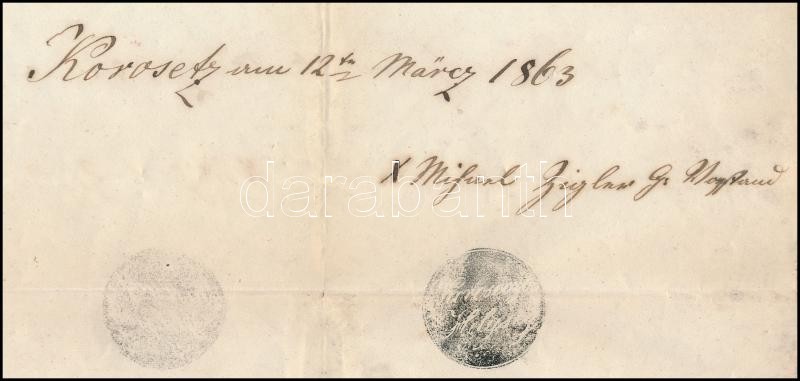 Korosetz am 12tn Märcz 1863
X Michael Zigler Gr Vorstand
darabanth